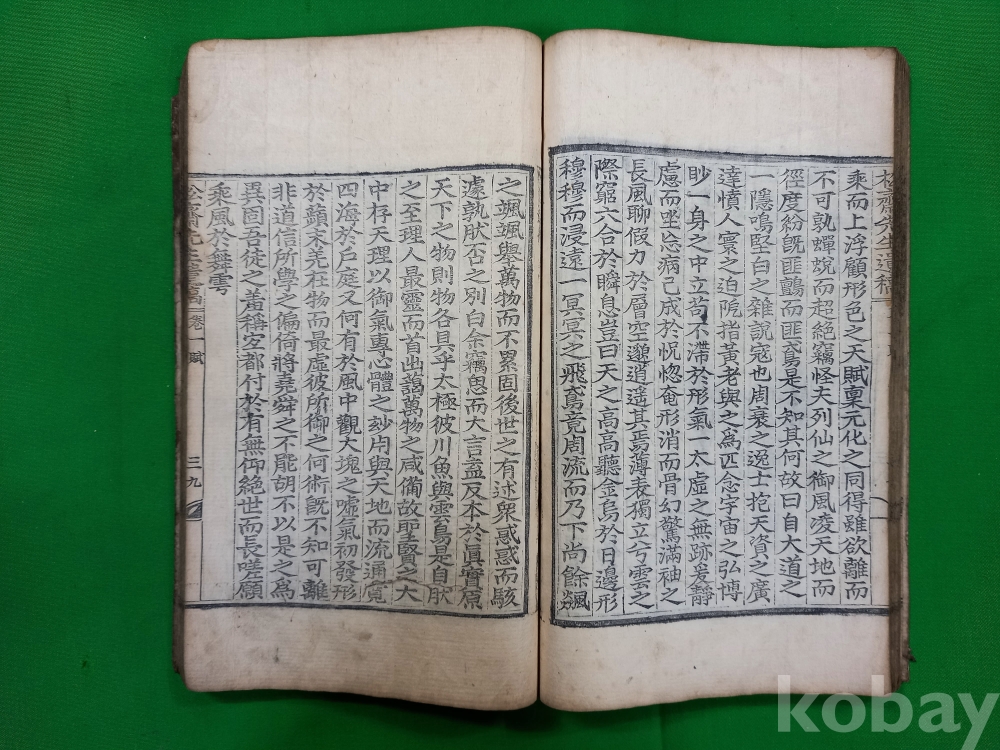 松齋先生遺稿
乘而上浮顧形色之天賦稟元化之同得雖欲離而
不可孰蟬蛻而超絶竊怪夫列仙之御風凌天地而
徑度紛旣匪鸇而匪鳶是不知其何故曰自大道之
一隱鳴堅白之雜說寇也周衰之逸士抱天資之廣
達憤人寰之迫阨指黃老與之爲匹念宇宙之弘博
眇一身之中立苟不滯於形氣一太虛之無跡爰靜
慮而坐忘病己成於怳惚奄形消而骨幻驚滿袖之
長風聊假力於層空邈逍遥其焉薄表獨立兮雲之
際窮六合於瞬息豈曰天之高高聽金烏於日邊形
穆穆而浸遠一冥冥之飛鳶竟周流而乃下尚餘飇
之颯颯擧萬物而不累固後世之有述衆惑惑而駭
濾孰肰否之別白余竊思而大言盍反本於眞實原
天下之物則物各具乎太極彼川魚與雲鳥是自肰
之至理人最靈而首出藹萬物之咸備故聖賢之大
中存天理以御氣專心體之玅用與天地而流通覽
四海於戶庭又何有於風中觀大塊之噓氣初發形
於蘋末羌在物而最虛彼所御之何術旣不知可離
非道信所學之偏倚將堯舜之不能胡不以是之爲
異固吾徒之羞稱宜都付於有無仰絶世而長嗟願
乘風於舞雩
松齋先生遺稿 卷一 賦
三九
kobay